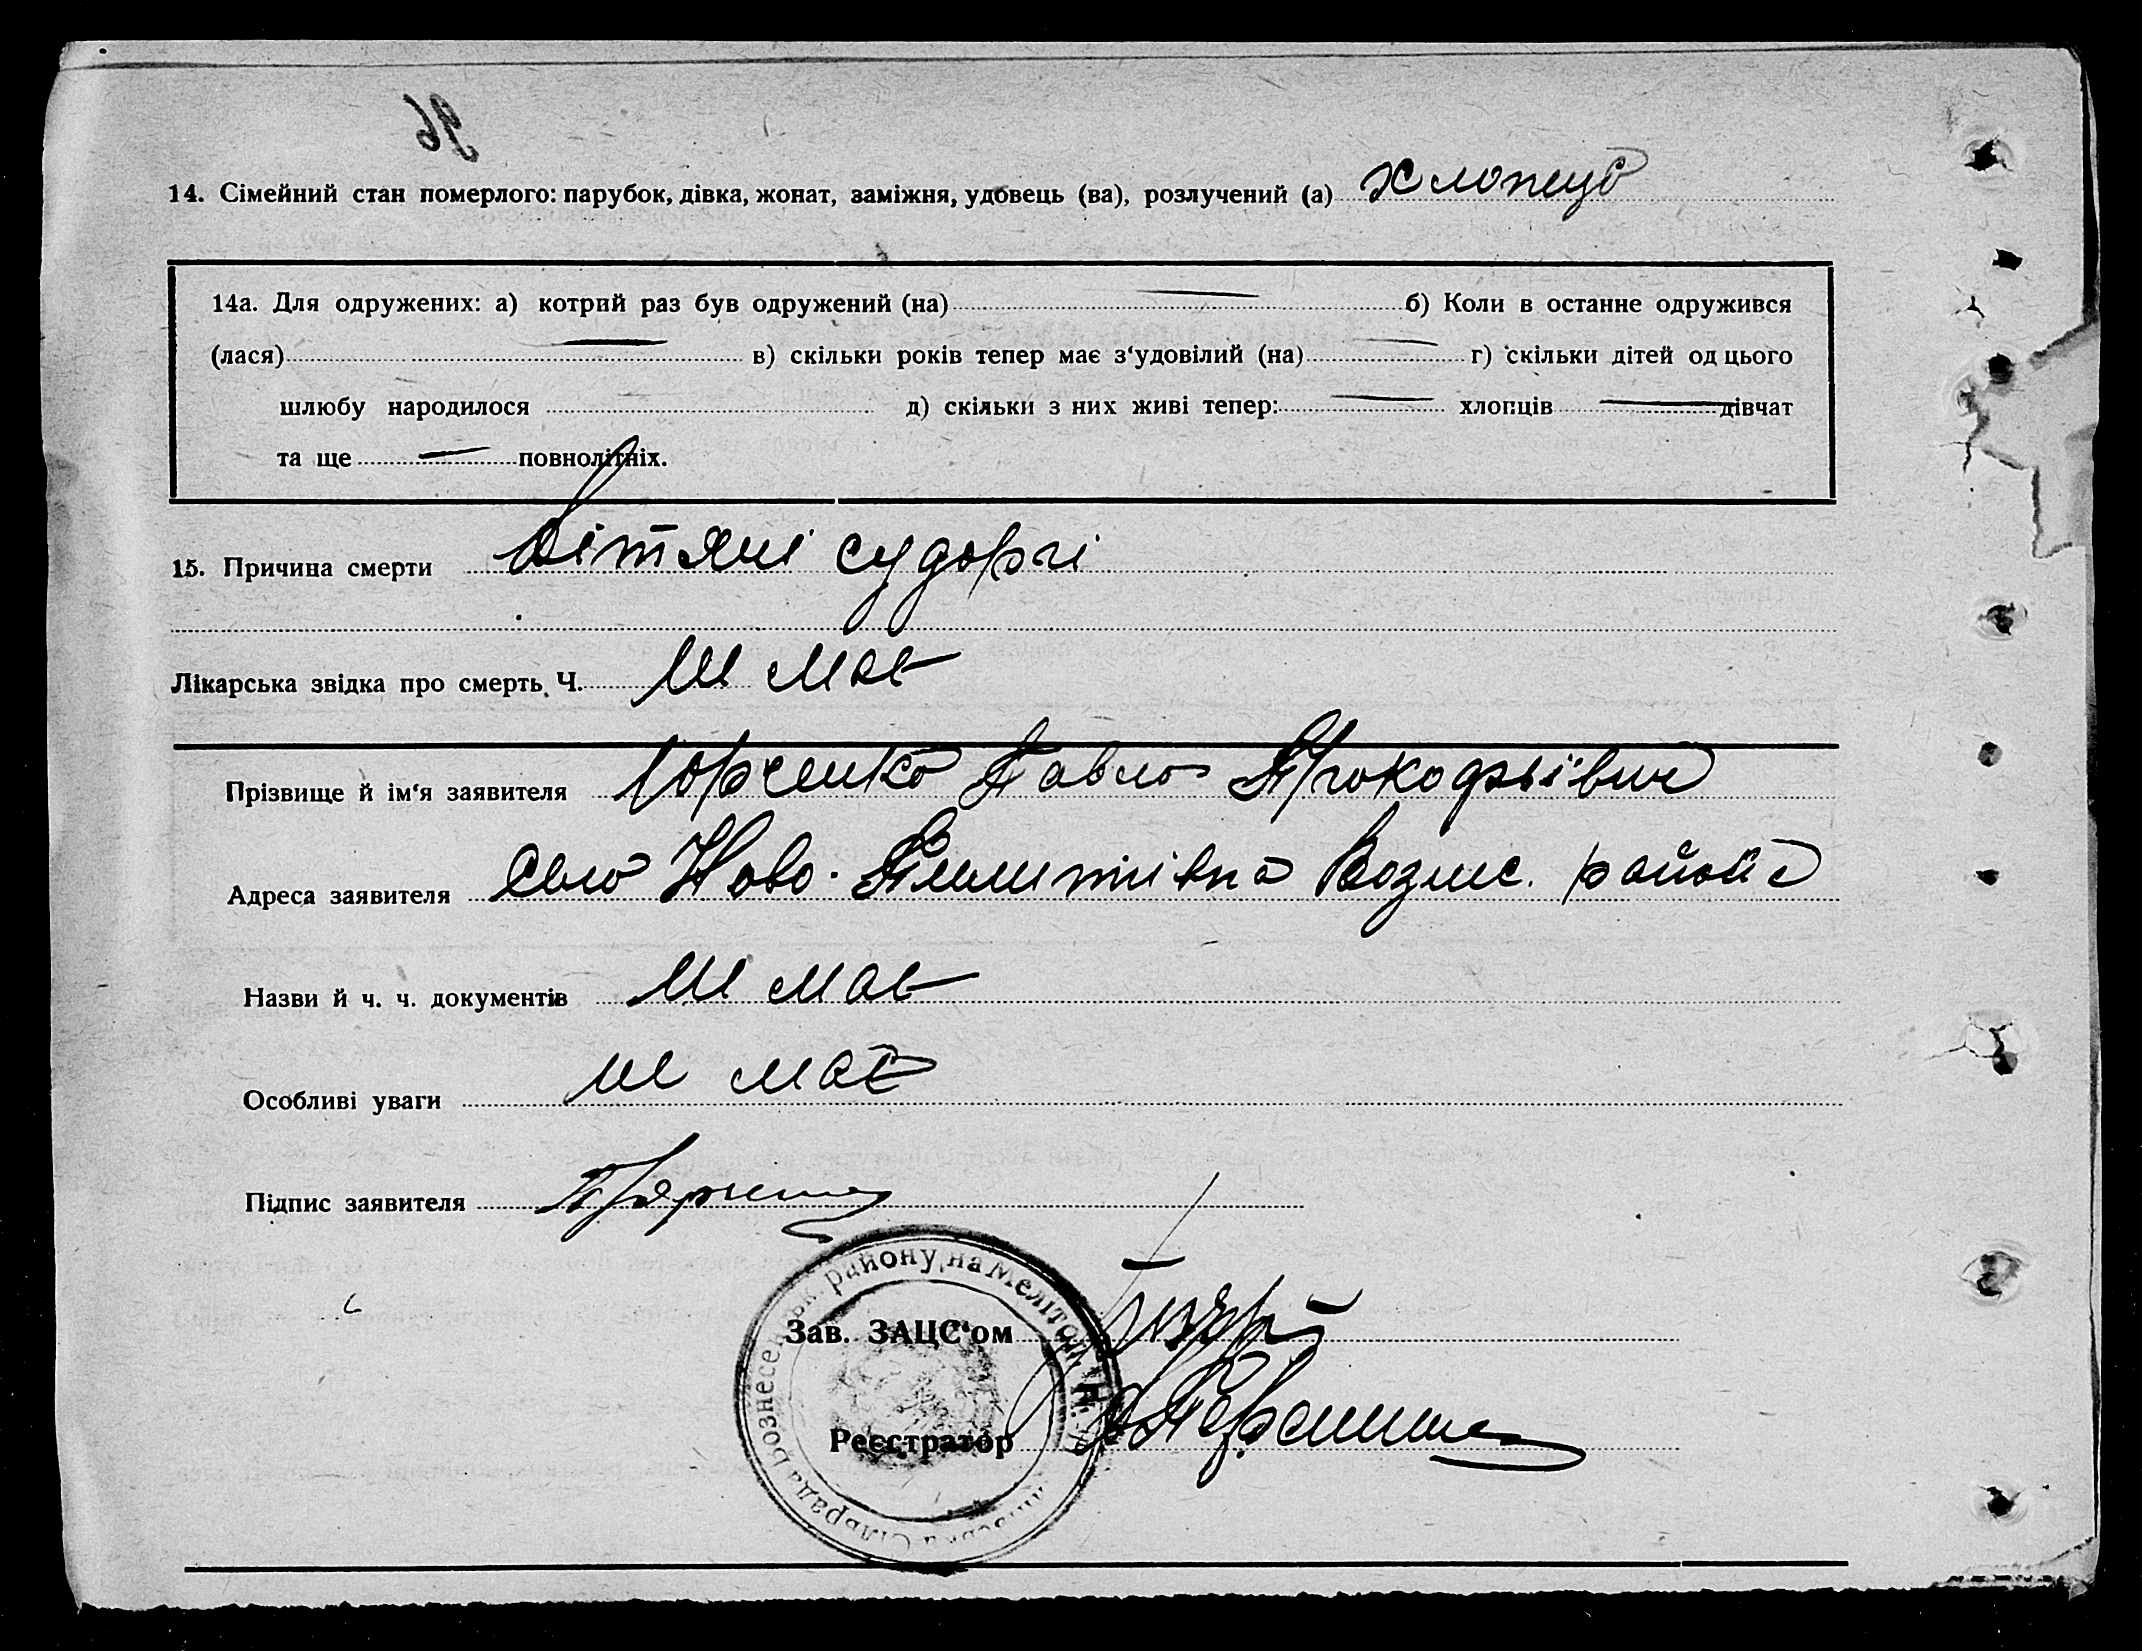 96
14. Сімейний стан померлого: парубок, дівка, жонат, заміжня, удовець (ва), розлучений (а) хлопець
14а. Для одружених: а) котрий раз був одружений (на) — б) Коли в останне одружився
(лася) — в) скільки років тепер має з'удовілий (на) — г) скільки дітей од цього
шлюбу народилося д) скільки з них живі тепер: — хлопців — дівчат
та ще — повнолітніх.
15. Причина смерти Дітячі судоргі
Лікарська звідка про смерть Ч. не має
Прізвище й ім'я заявителя Юрченко Павло Прокофьївич
Адреса заявителя село Ново- Вознес. района
Назви й ч. ч. документів не має
Особливі уваги не має
Підпис заявителя
району на Меліто
Зав. ЗАЦС'ом
Реєстратор